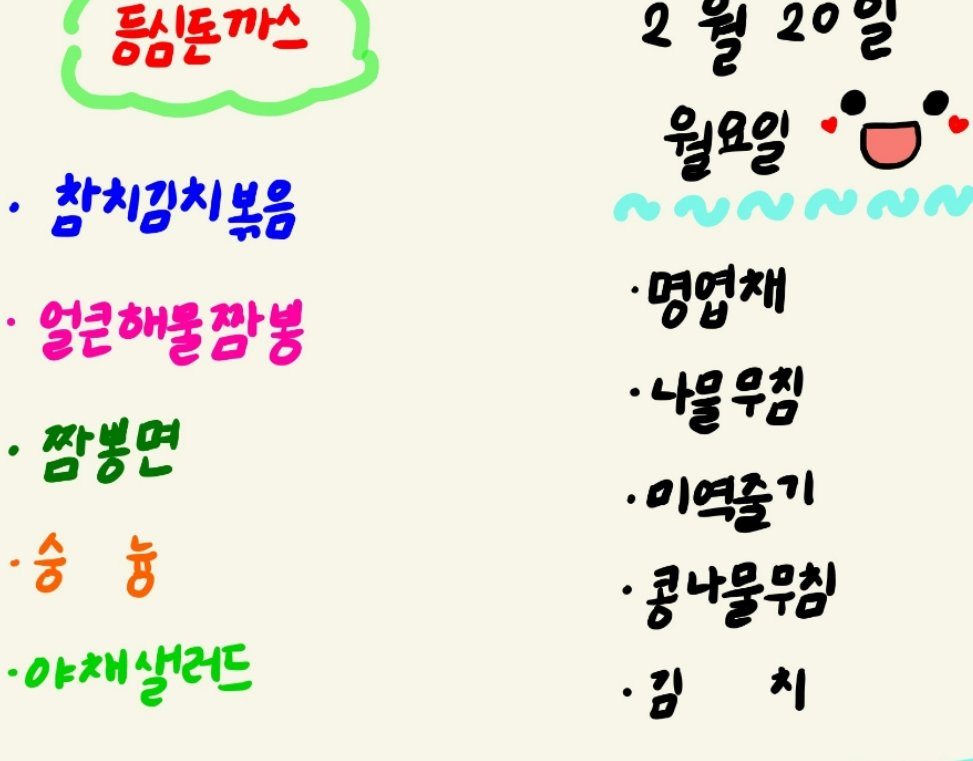 등심돈까스
참치김치볶음
얼큰해물짬뽕
짬뽕면
숭 늉
야채샐러드
2월 20일
월요일
명엽채
나물무침
미역줄기
콩나물무침
김 치